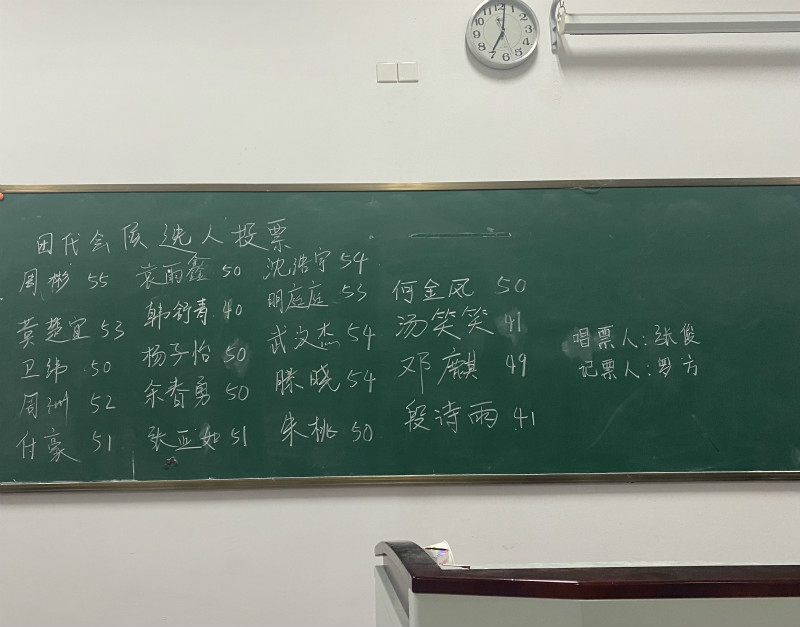 团代会候选人投票
周彬 55 袁雨鑫 50 沈浩宇 54
黄楚宜 53 韩舒青 40 明庭庭 53 何金凤 50
卫纬 50 杨子怡 50 武汶杰 54 汤笑笑 41
周洲 52 余春勇 50 滕晓 54 邓麒 49
付豪 51 张亚如 51 朱桃 50 段诗雨 41
唱票人:张俊
记票人:罗方